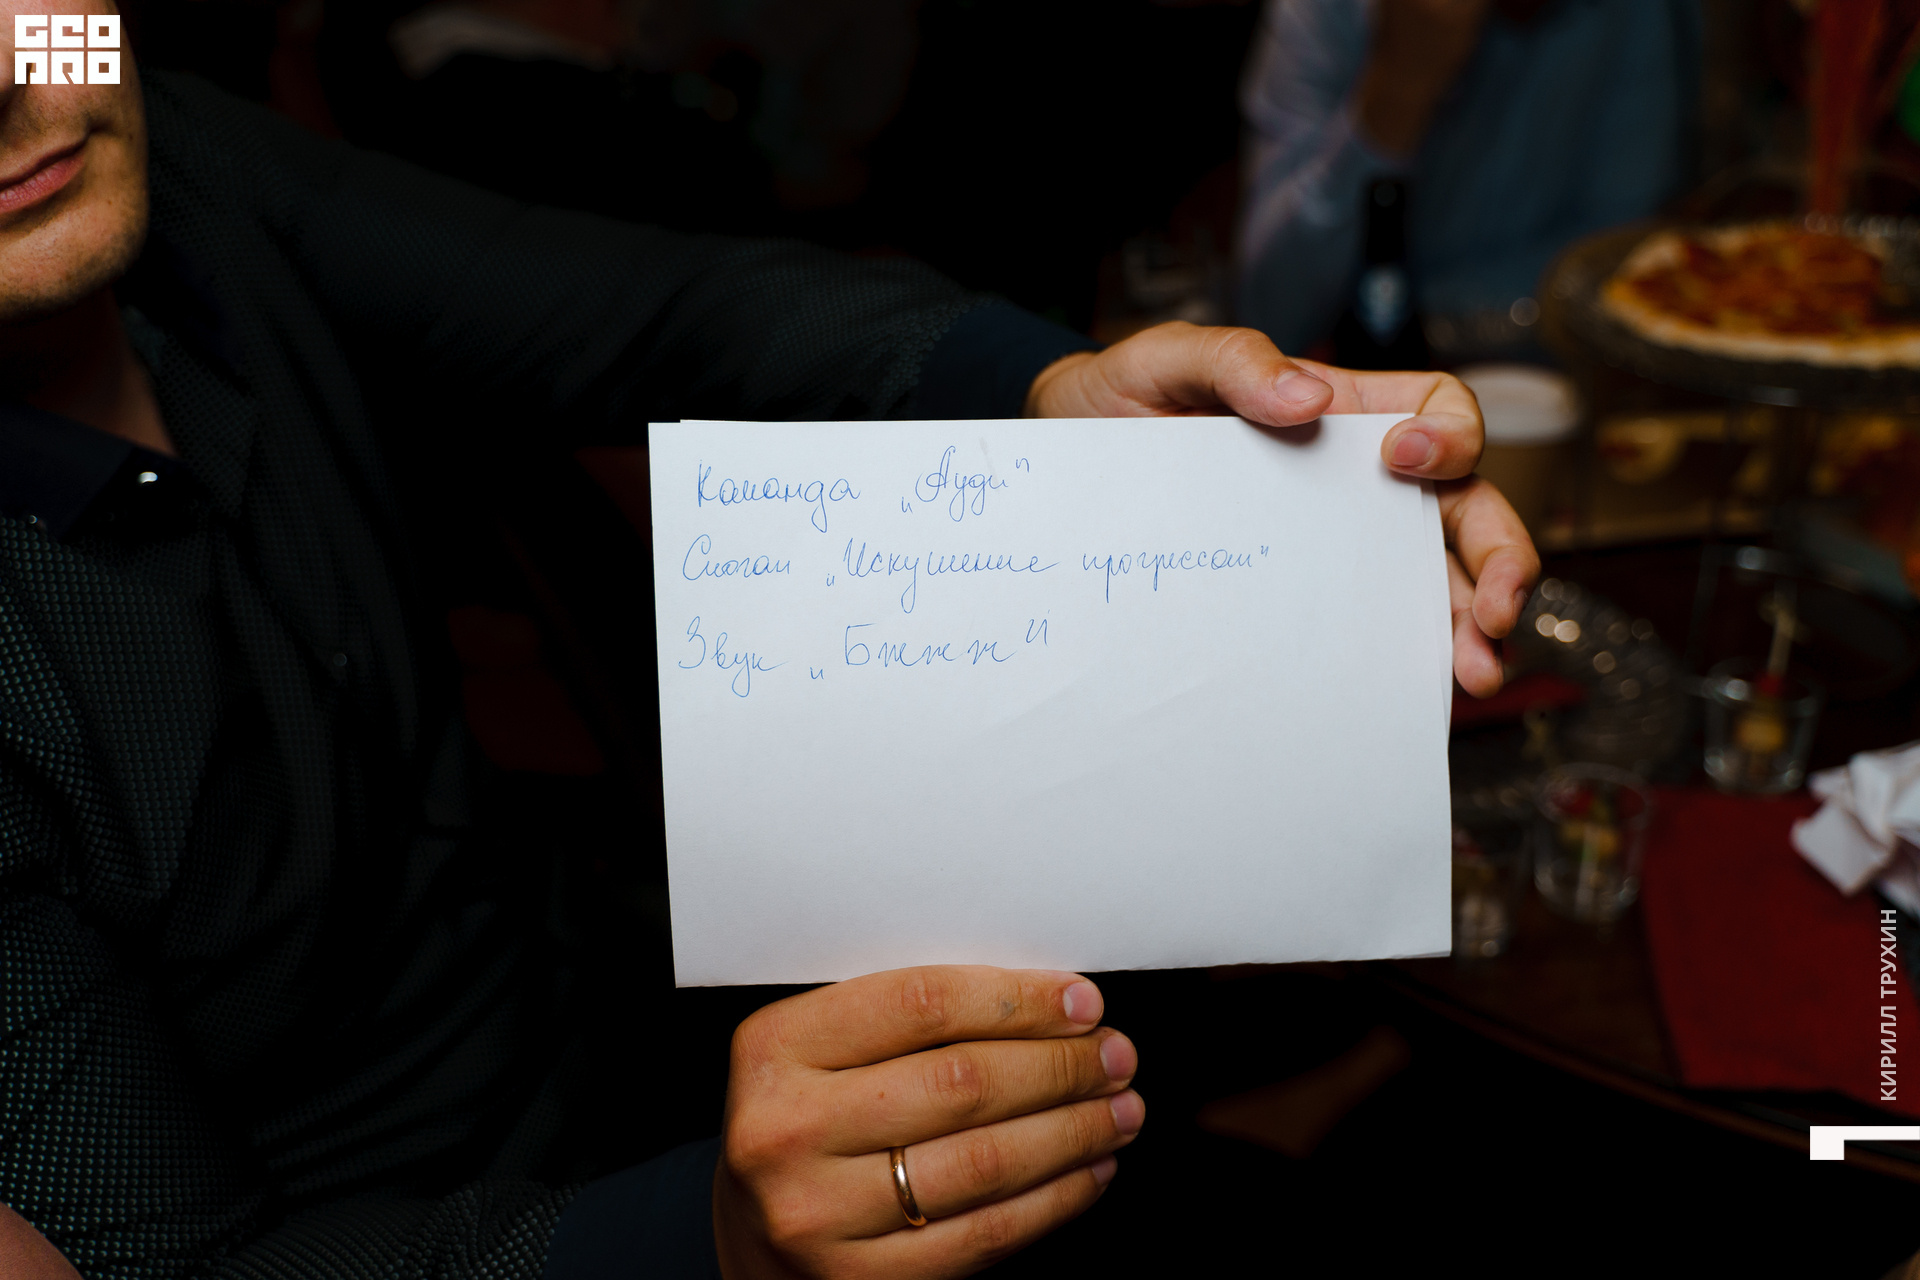 GEO
PRO
Команда „Ауди"
Слоган „Искушение прогрессом"
Звук „Бжжж"
КИРИЛЛ ТРУХИН